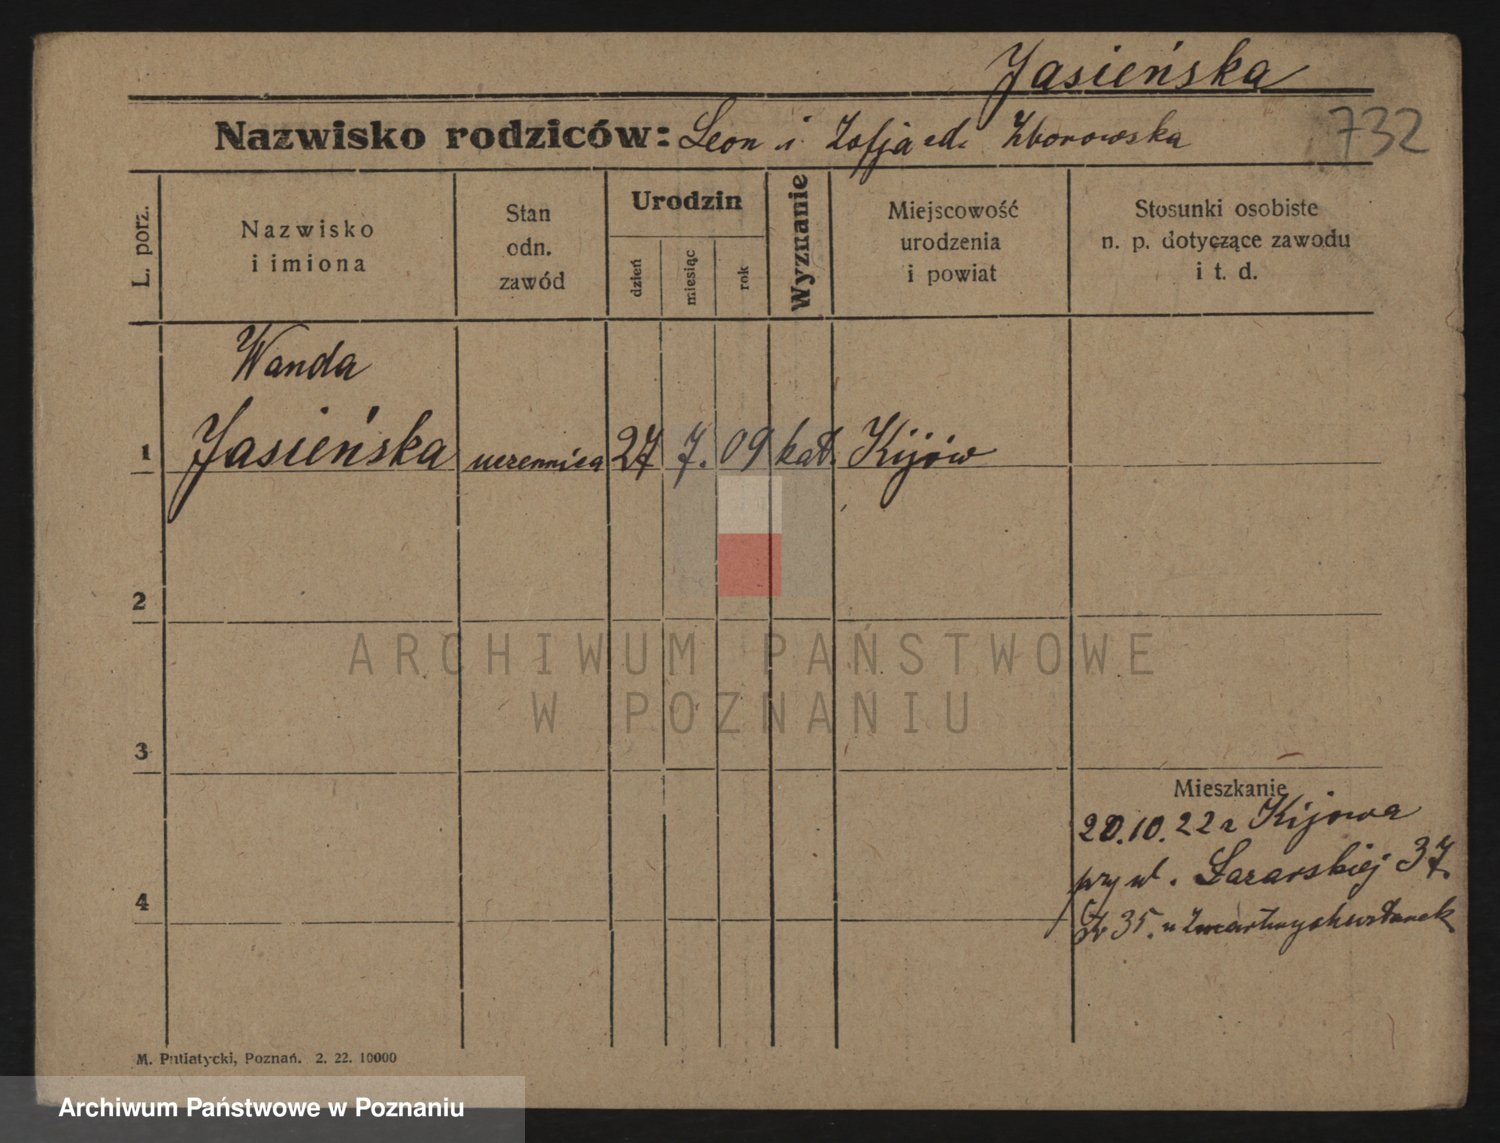 Jasieńska
Nazwisko rodziców: Leon i Zofja ed. Zborowska
732
L. porz.
Nazwisko
i imiona
Stan
odn.
zawód
Urodzin
dzień
miesiąc
rok
Wyznanie
Miejscowość
urodzenia
i powiat
Stosunki osobiste
n. p. dotyczące zawodu
i t. d.
Wanda
1 Jasieńska uczennica 27 7. 09 kat. Kijów
2
ARCHIWUM PAŃSTWOWE
W POZNANIU
3
Mieszkanie
20.10.22 z Kijowa
przy ul. Łazarskiej 37.
4
35. u Zmartwychwstanek
M. Putiatycki, Poznań. 2. 22. 10000
Archiwum Państwowe w Poznaniu